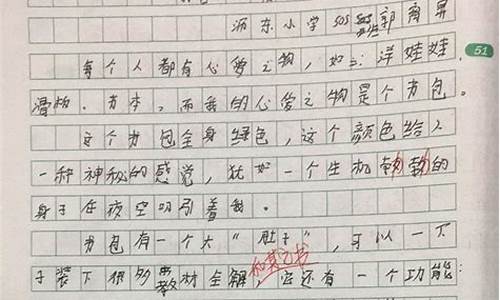 沥东小学505班郭育昇
51
每个人都有心爱之物,如:洋娃娃,
滑板,书本,而我的心爱之物是个书包。
这个书包全身绿色,这个颜色给人
一种神秘的感觉,犹如一个生机勃勃的
身子在夜空吸引着我。
书包有一个大“肚子”,可以一下
子装下很多教材全解和其它书它还有一个功能